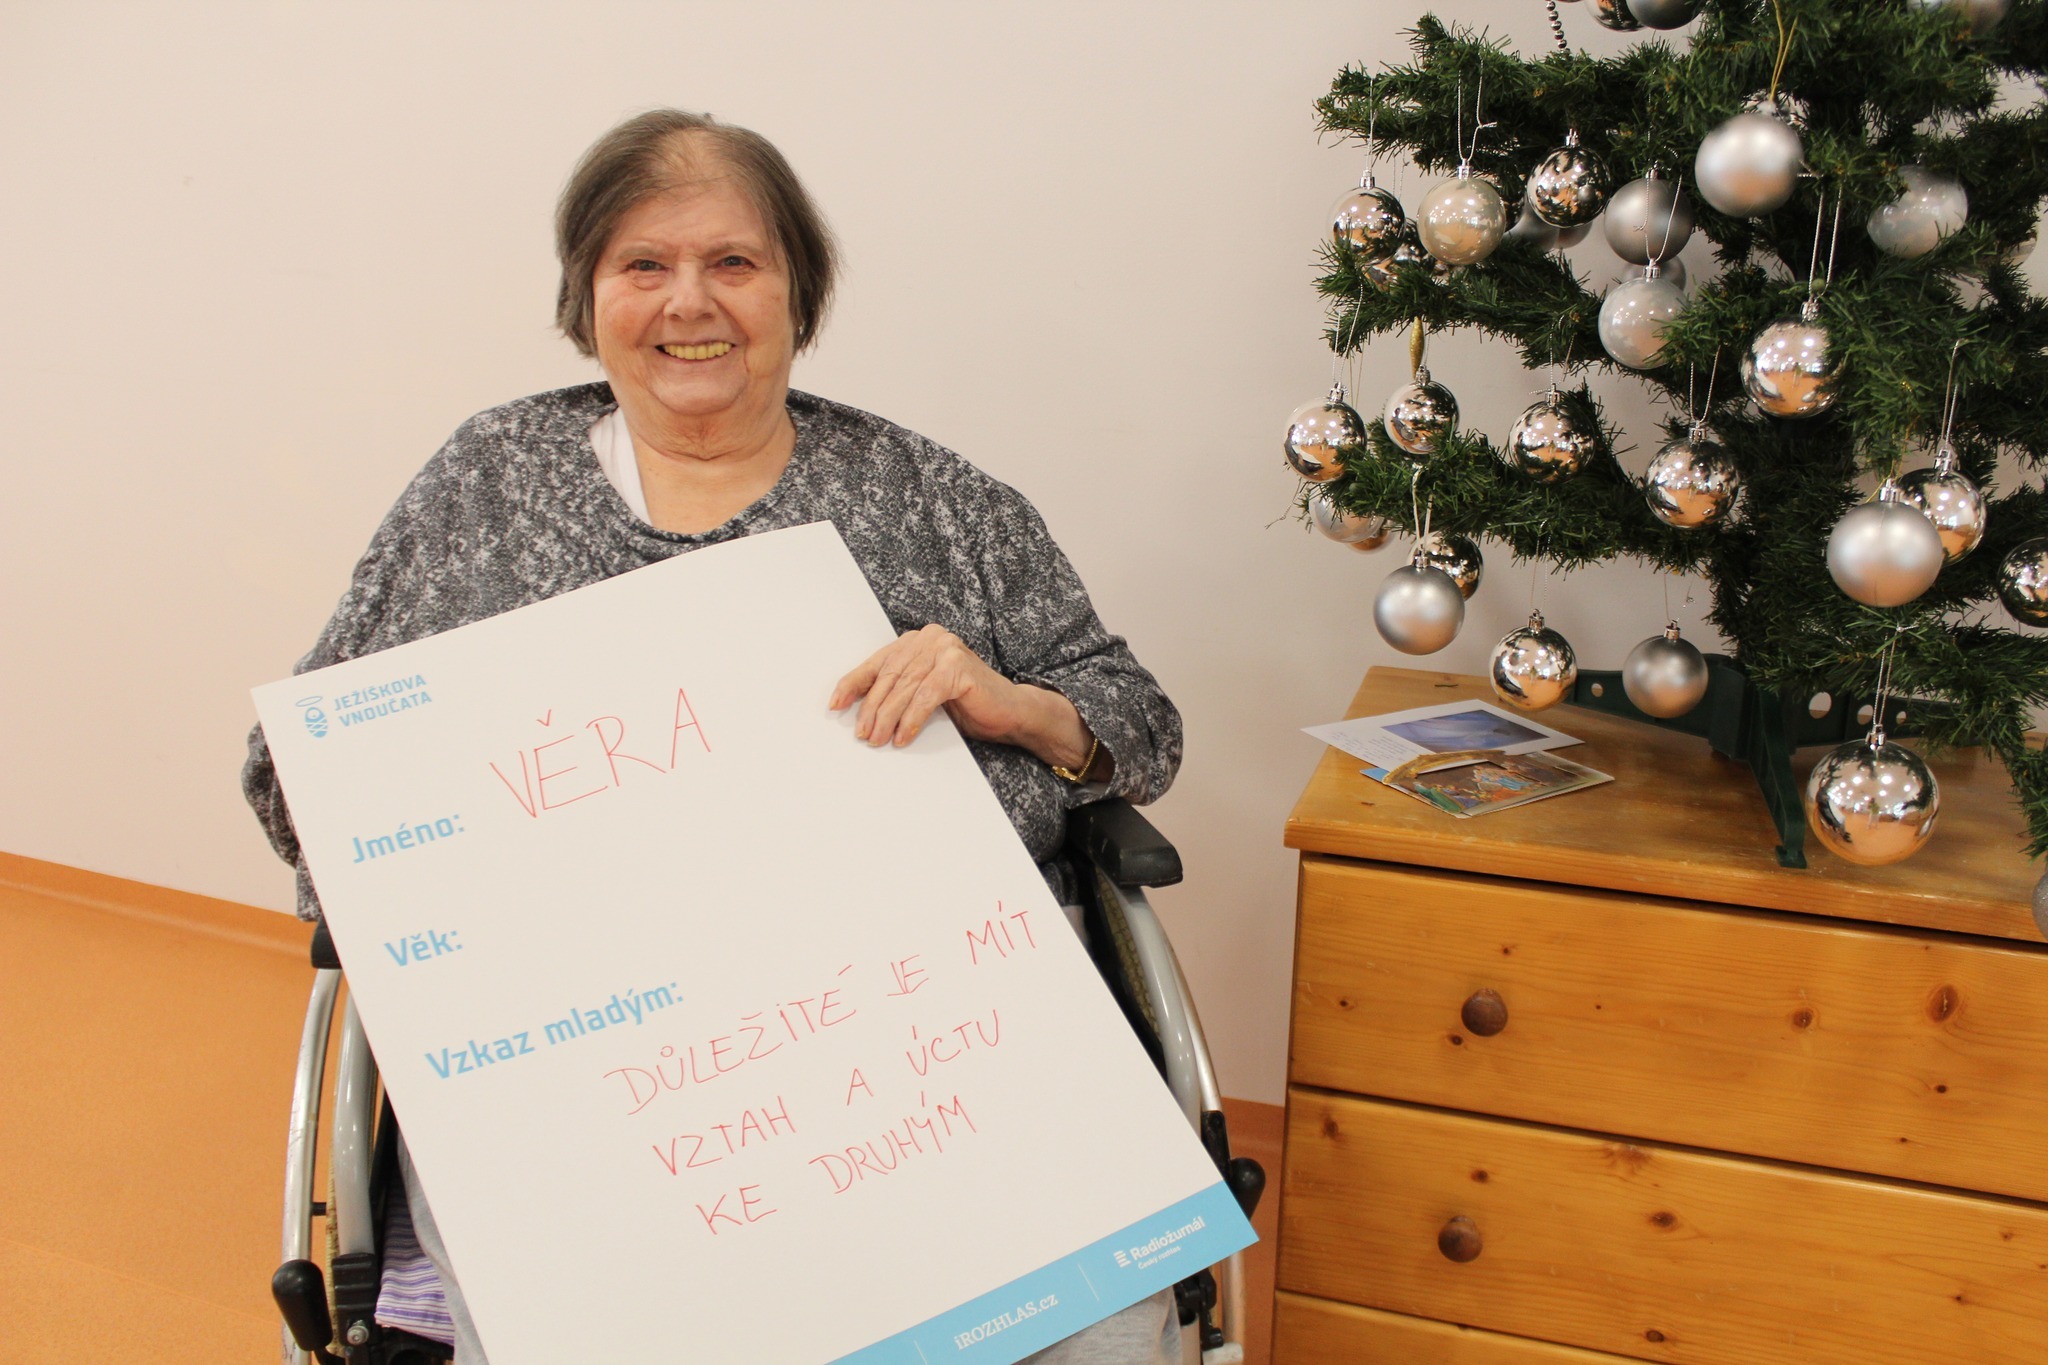 JEŽÍŠKOVA
VNOUČATA
Jméno: VĚRA
Věk:
Vzkaz mladým:
DŮLEŽITÉ JE MÍT
VZTAH A ÚCTU
KE DRUHÝM
iROZHLAS.cz
Radiožurnál
Český rozhlas